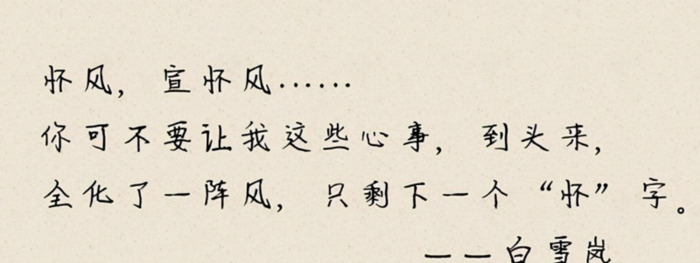 怀风，宣怀风……
你可不要让我这些心事，到头来，
全化了一阵风，只剩下一个“怀”字。
——白雪岚